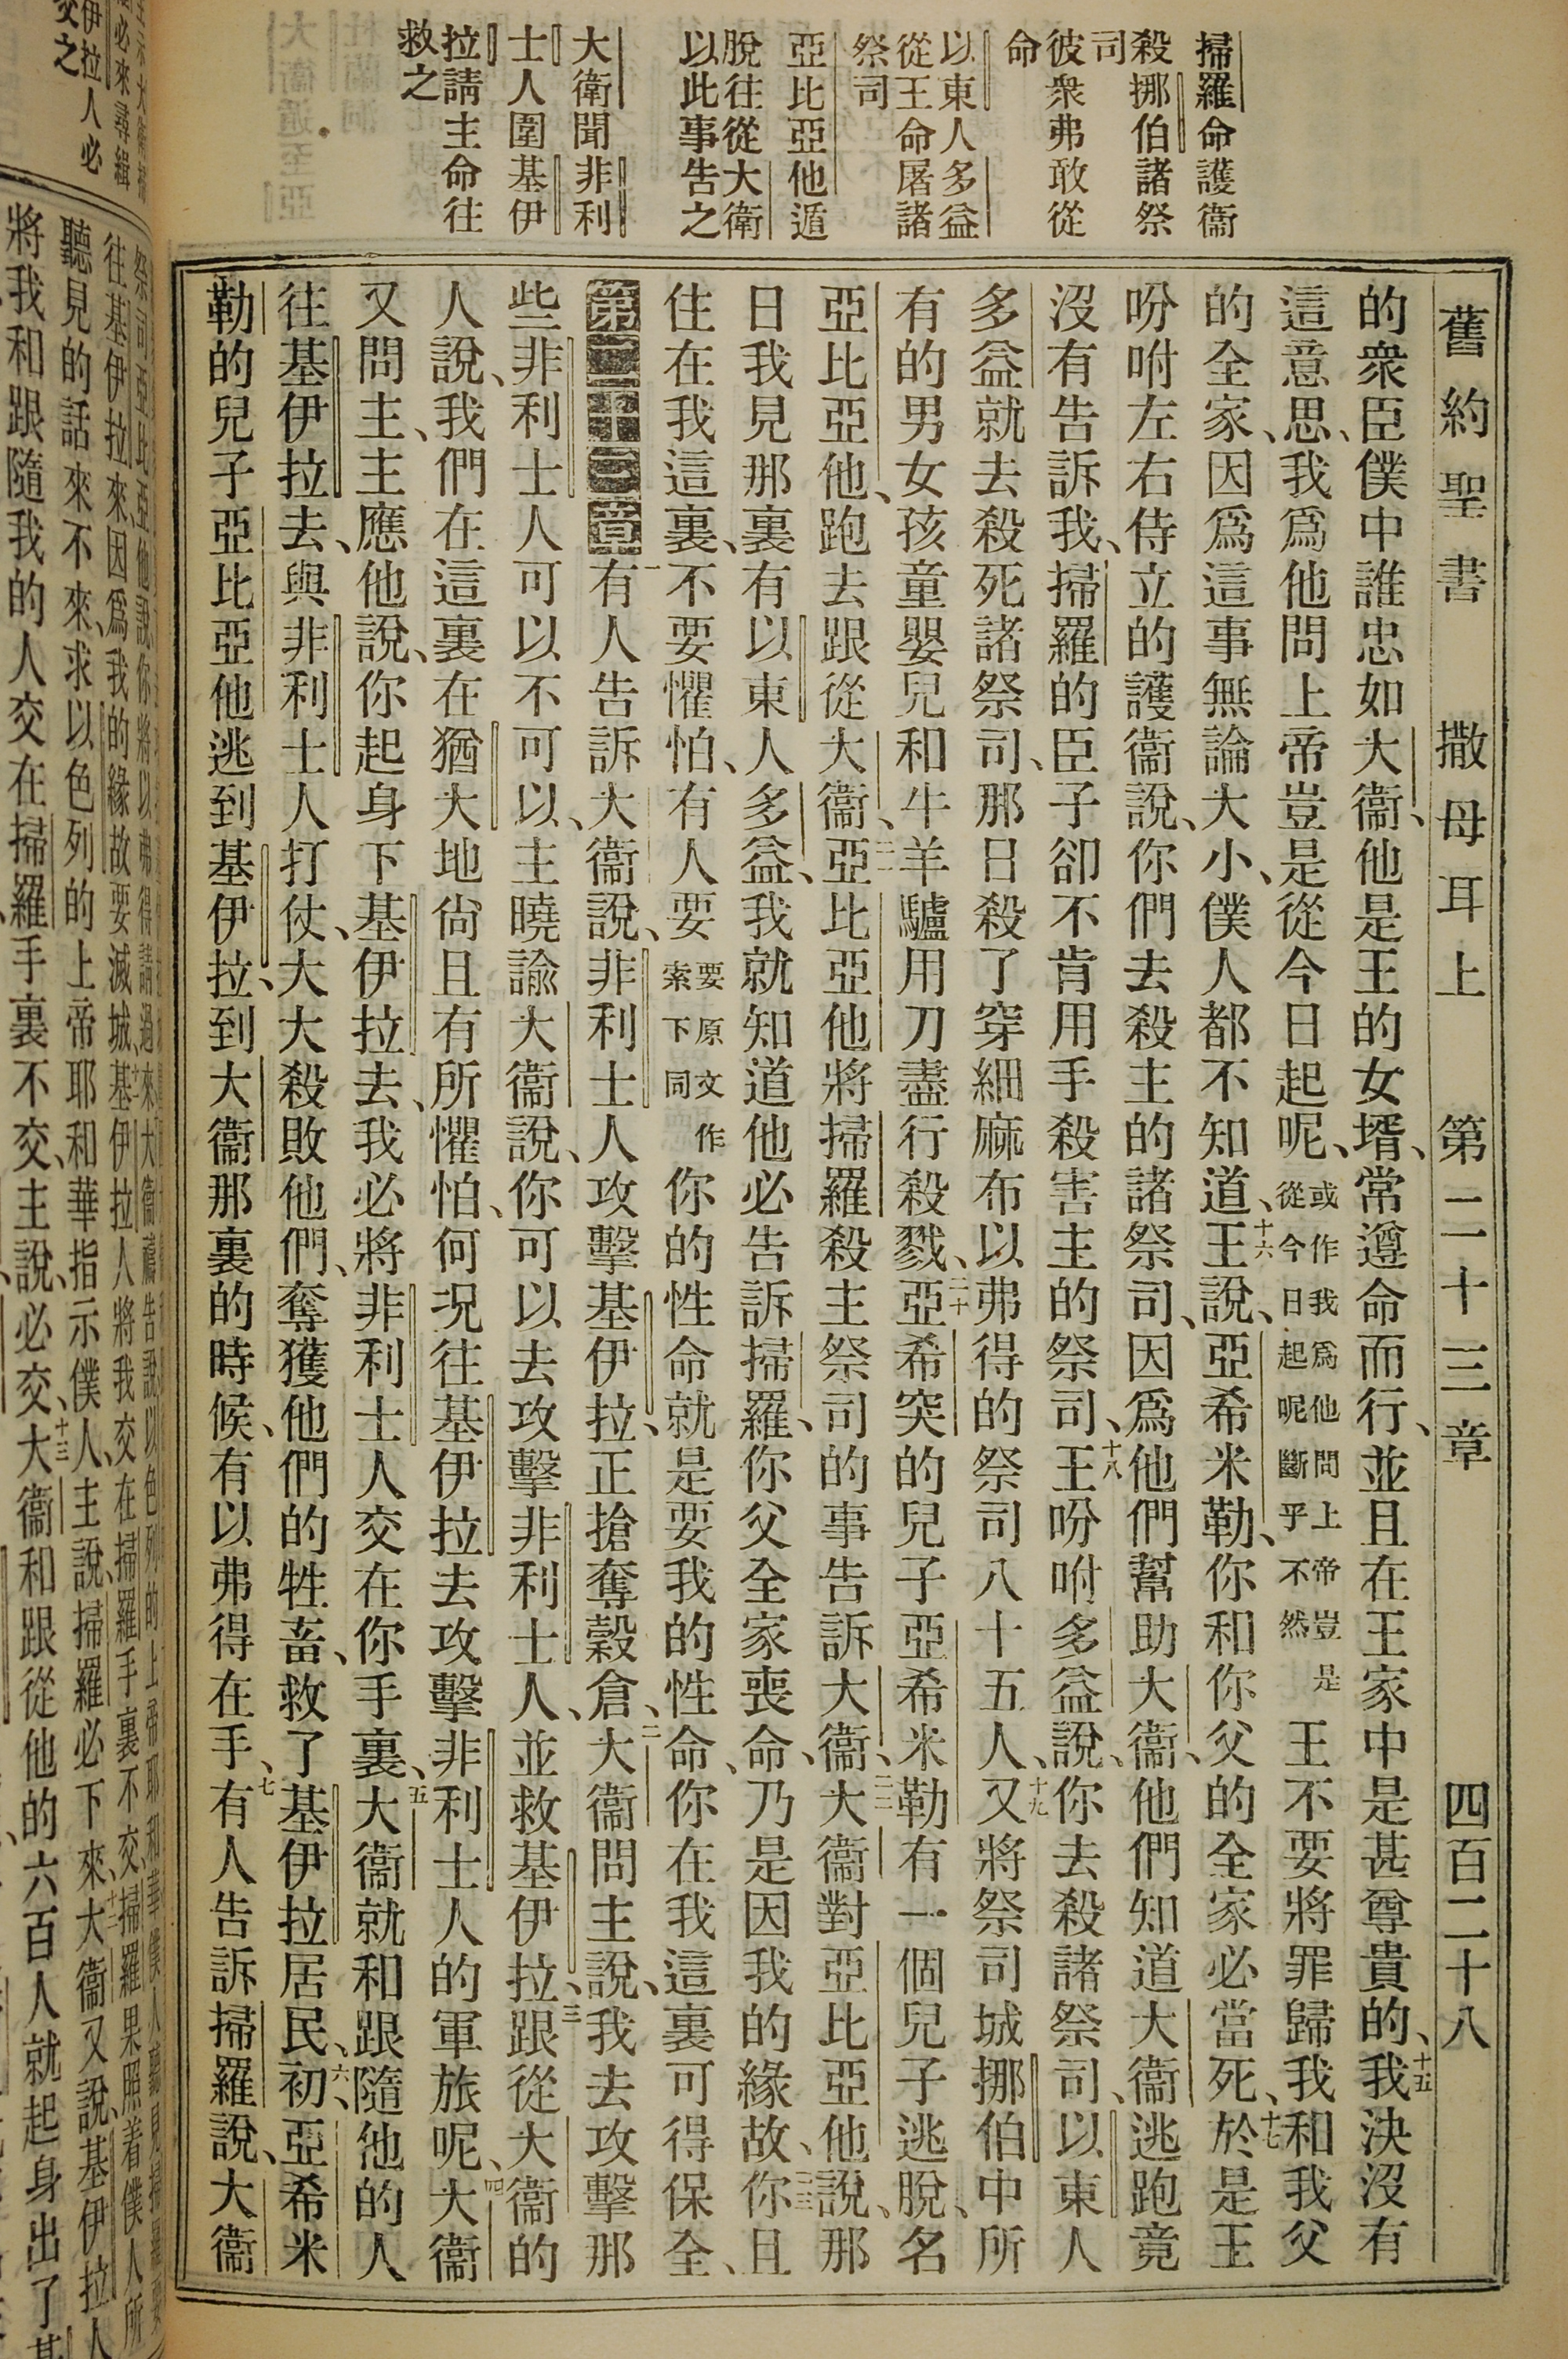 舊約聖書 撒母耳上 第二十三章 四百二十八
掃羅命護衞
殺挪伯諸祭
司
彼衆弗敢從
命
以東人多益
從王命屠諸
祭司
亞比亞他遁
脫往從大衞
以此事告之
大衞聞非利
士人圍基伊
拉請主命往
救之
的衆臣僕中誰忠如大衞、他是王的女壻、常遵命而行、並且在王家中是甚尊貴的、十五我決沒有
這意思、我爲他問上帝豈是從今日起呢、或作我爲他問上帝豈是從今日起呢斷乎不然王不要將罪歸我和我父
的全家、因爲這事無論大小、僕人都不知道、十六王說、亞希米勒、你和你父的全家必當死、十七於是王
吩咐左右侍立的護衞說、你們去殺主的諸祭司、因爲他們幫助大衞、他們知道大衞逃跑竟
沒有告訴我、掃羅的臣子卻不肯用手殺害主的祭司、十八王吩咐多益說、你去殺諸祭司、以東人
多益就去殺死諸祭司、那日殺了穿細麻布以弗得的祭司八十五人、十九又將祭司城挪伯中所
有的男女孩童嬰兒和牛羊驢用刀盡行殺戮、二十亞希突的兒子亞希米勒有一個兒子逃脫、名
亞比亞他、跑去跟從大衞、二一亞比亞他將掃羅殺主祭司的事告訴大衞、二二大衞對亞比亞他說、那
日我見那裏有以東人多益、我就知道他必告訴掃羅、你父全家喪命、乃是因我的緣故、二三你且
住在我這裏、不要懼怕、有人要要原文作索下同你的性命就是要我的性命、你在我這裏可得保全、
第二十三章 一有人告訴大衞說、非利士人攻擊基伊拉、正搶奪穀倉、二大衞問主說、我去攻擊那
些非利士人可以不可以、主曉諭大衞說、你可以去攻擊非利士人、並救基伊拉、三跟從大衞的
人說、我們在這裏在猶大地尙且有所懼怕、何况往基伊拉去攻擊非利士人的軍旅呢、四大衞
又問主、主應他說、你起身下基伊拉去、我必將非利士人交在你手裏、五大衞就和跟隨他的人
往基伊拉去、與非利士人打仗、大大殺敗他們、奪獲他們的牲畜、救了基伊拉居民、六初、亞希米
勒的兒子亞比亞他逃到基伊拉、到大衞那裏的時候、有以弗得在手、七有人告訴掃羅說、大衞
伊拉人必
往基伊拉來、因爲我的緣故要滅城、基伊拉人將我交在掃羅手裏不交、掃羅果照着僕人所
聽見的話來不來、求以色列的上帝耶和華指示僕人、主說、掃羅必下來、十二大衞又說、基伊拉人
將我和跟隨我的人交在掃羅手裏不交、主說、必交、十三大衞和跟從他的六百人就起身出了基